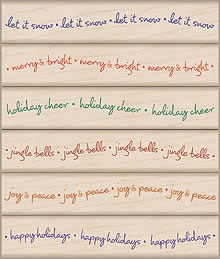 let it snow • let it snow • let it snow • let it snow
• merry & bright • merry & bright • merry & bright •
holiday cheer • holiday cheer • holiday cheer
• jingle bells • jingle bells • jingle bells • jingle bells
joy & peace • joy & peace • joy & peace • joy & peace
• happy holidays • happy holidays • happy holidays •